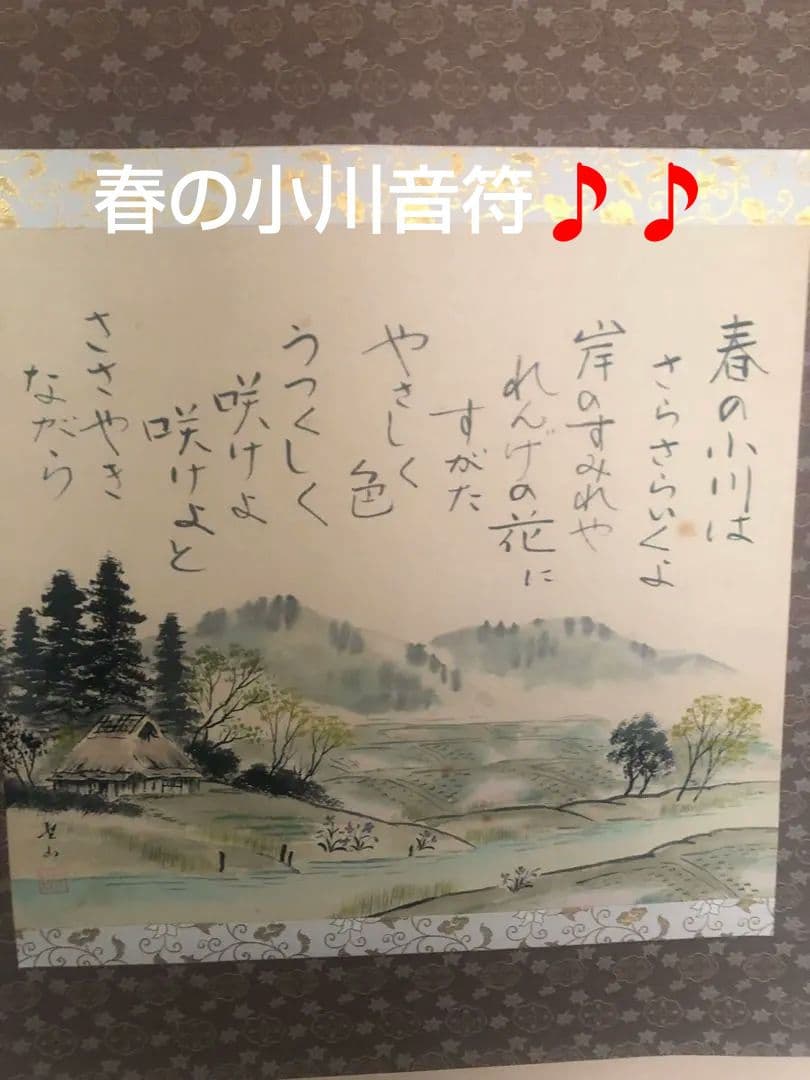 春の小川音符♪♪
春の小川は
さらさらいくよ
岸のすみれや
れんげの花に
すがた
やさしく
色
うつくしく
咲けよ
咲けよと
ささやき
ながら